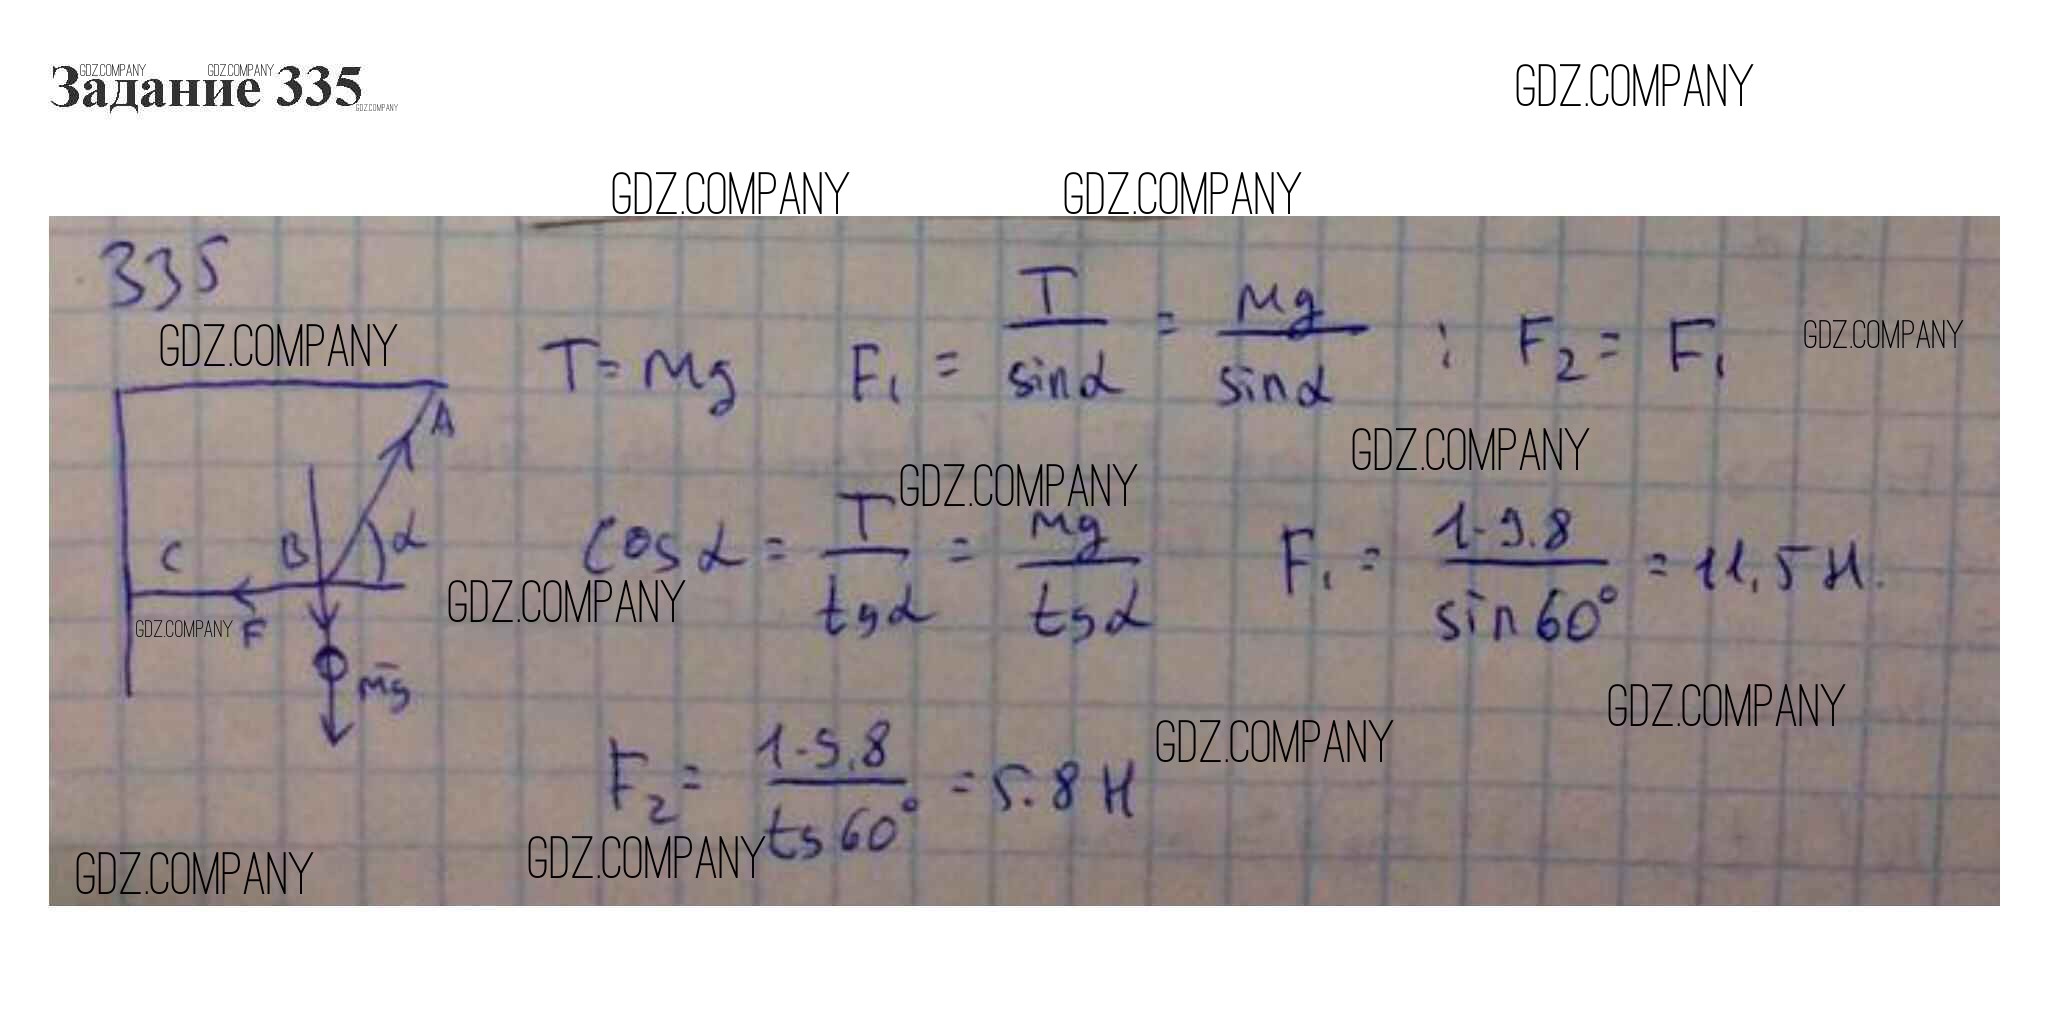 Задание 335
GDZ.COMPANY GDZ.COMPANY
GDZ.COMPANY
GDZ.COMPANY
GDZ.COMPANY GDZ.COMPANY
335
GDZ.COMPANY
T = mg F₁ = T/sinα = mg/sinα ; F₂ = F₁
GDZ.COMPANY
GDZ.COMPANY
GDZ.COMPANY
A
C B α
cosα = T/tgα = mg/tgα F₁ = 1·9.8/sin60° = 11,5 Н.
GDZ.COMPANY
GDZ.COMPANY F
mg
GDZ.COMPANY
GDZ.COMPANY
F₂ = 1·9.8/tg60° = 5.8 Н
GDZ.COMPANY
GDZ.COMPANY